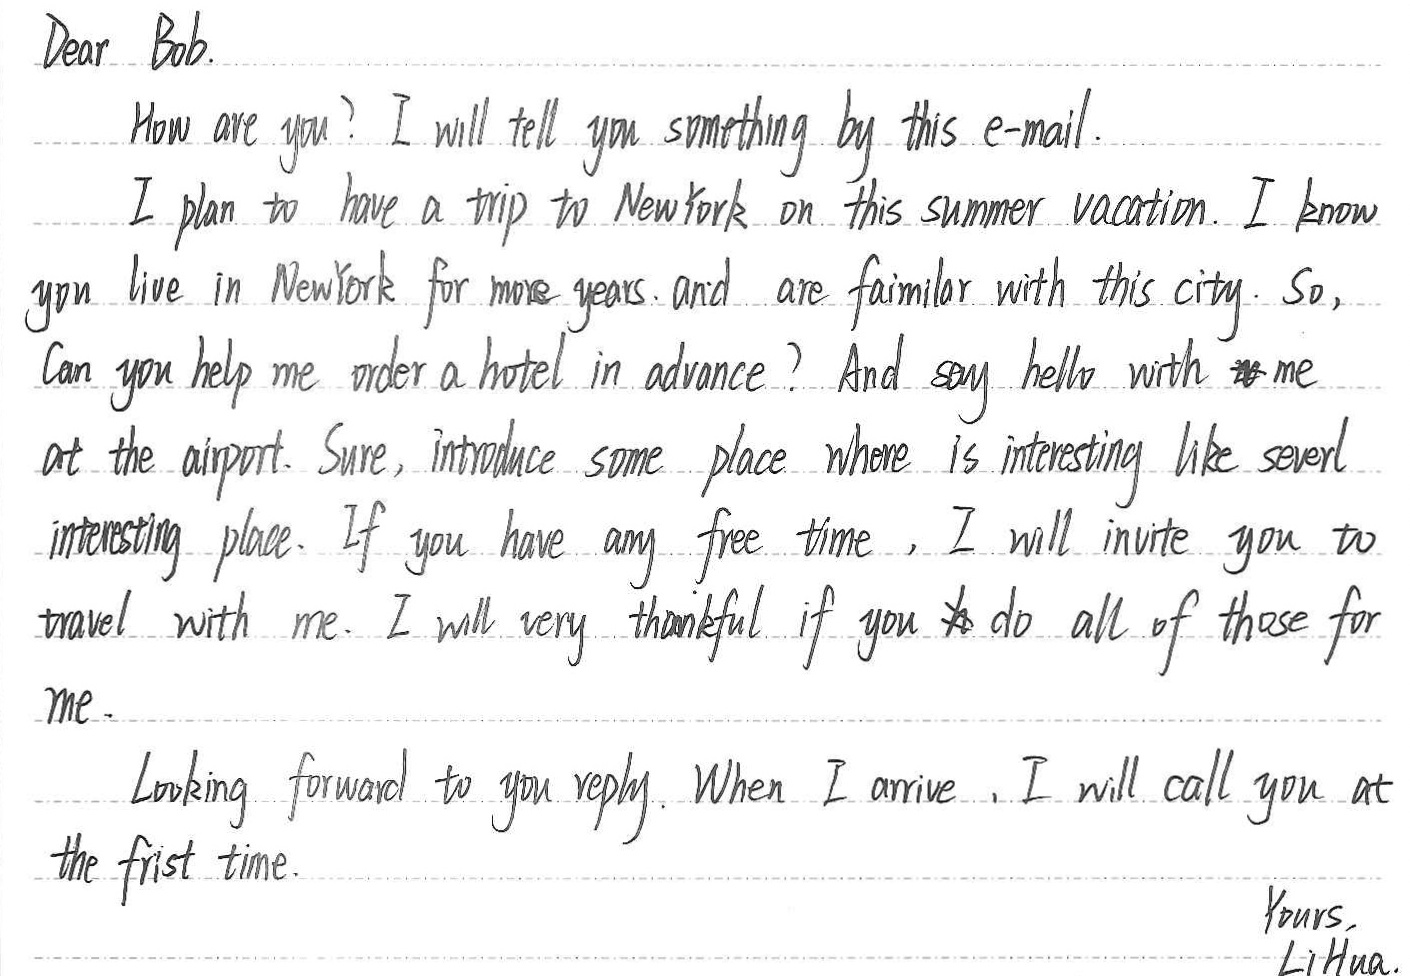 Dear Bob.
How are you? I will tell you something by this e-mail.
I plan to have a trip to NewYork on this summer vacation. I know
you live in NewYork for more years. and are faimilar with this city. So,
Can you help me order a hotel in advance? And say hello with me
at the airport. Sure, introduce some place where is interesting like severl
interesting place. If you have any free time, I will invite you to
travel with me. I will very thankful if you do all of those for
me.
Looking forward to you reply. When I arrive, I will call you at
the frist time.
Yours,
Li Hua.